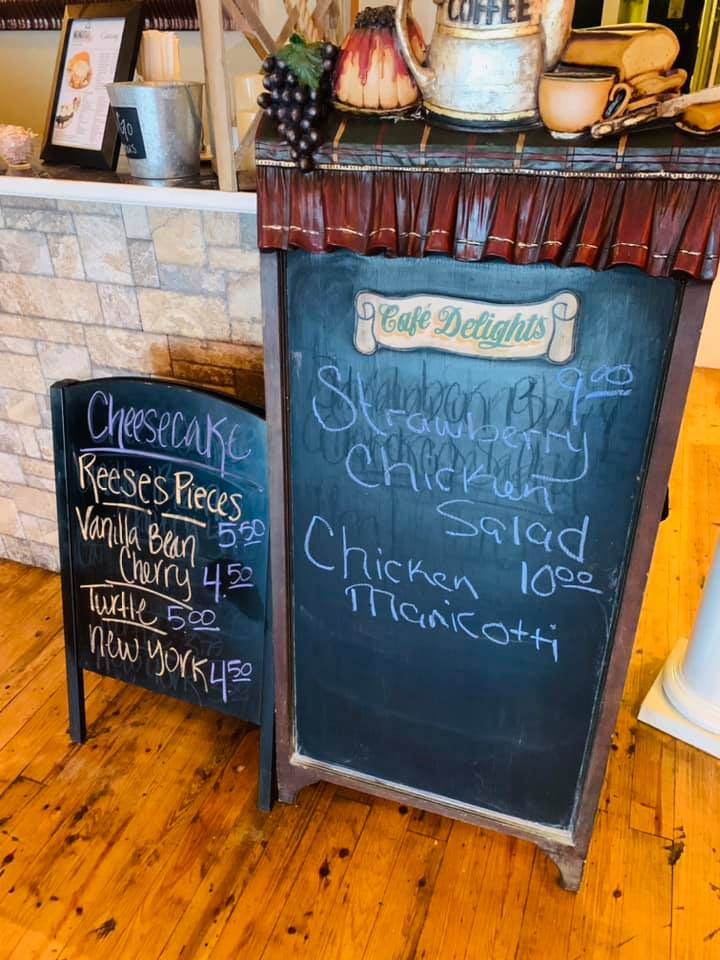 COFFEE
Café Delights
9.00
Strawberry
Chicken
Salad
Chicken 10.00
Manicotti
Cheesecake
Reese's Pieces
5.50
Vanilla Bean
Cherry 4.50
Turtle 5.00
New York 4.50